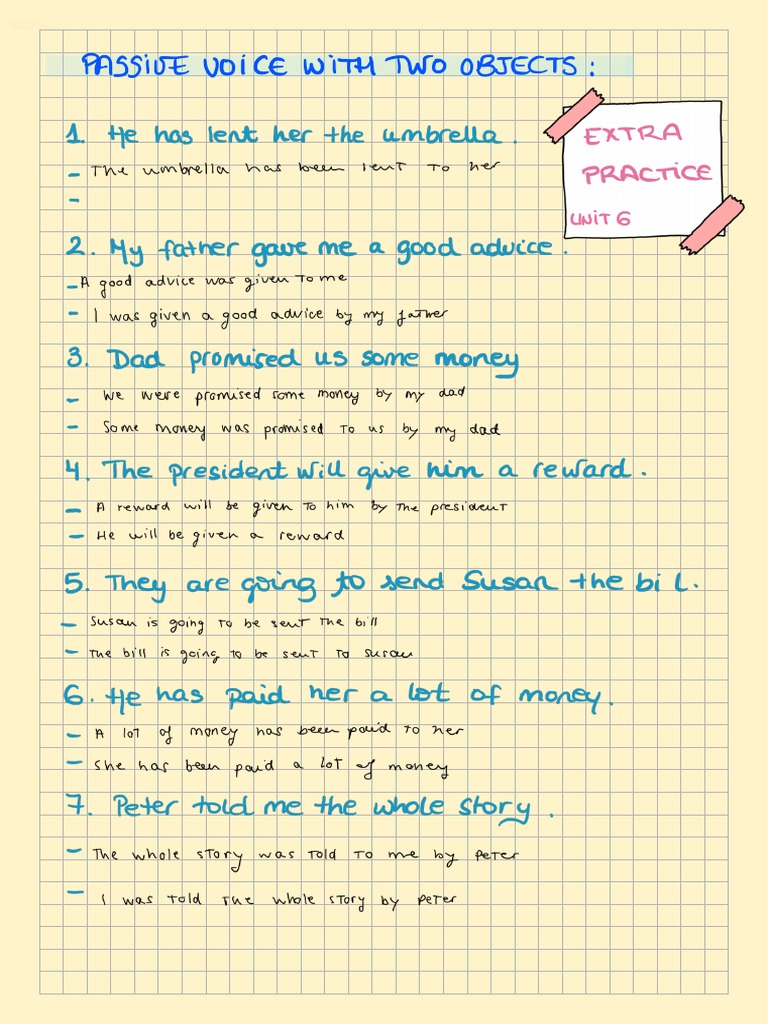 PASSIVE VOICE WITH TWO OBJECTS :
EXTRA
PRACTICE
UNIT 6
1. He has lent her the umbrella .
- The umbrella has been lent to her
-
2. My father gave me a good advice .
- A good advice was given to me
- I was given a good advice by my father
3. Dad promised us some money
- We were promised some money by my dad
- Some money was promised to us by my dad
4. The president will give him a reward .
- A reward will be given to him by the president
- He will be given a reward
5. They are going to send Susan the bi l.
- Susan is going to be sent the bill
- The bill is going to be sent to Susan
6. He has paid her a lot of money .
- A lot of money has been paid to her
- She has been paid a lot of money
7. Peter told me the whole story .
- The whole story was told to me by Peter
- I was told the whole story by Peter